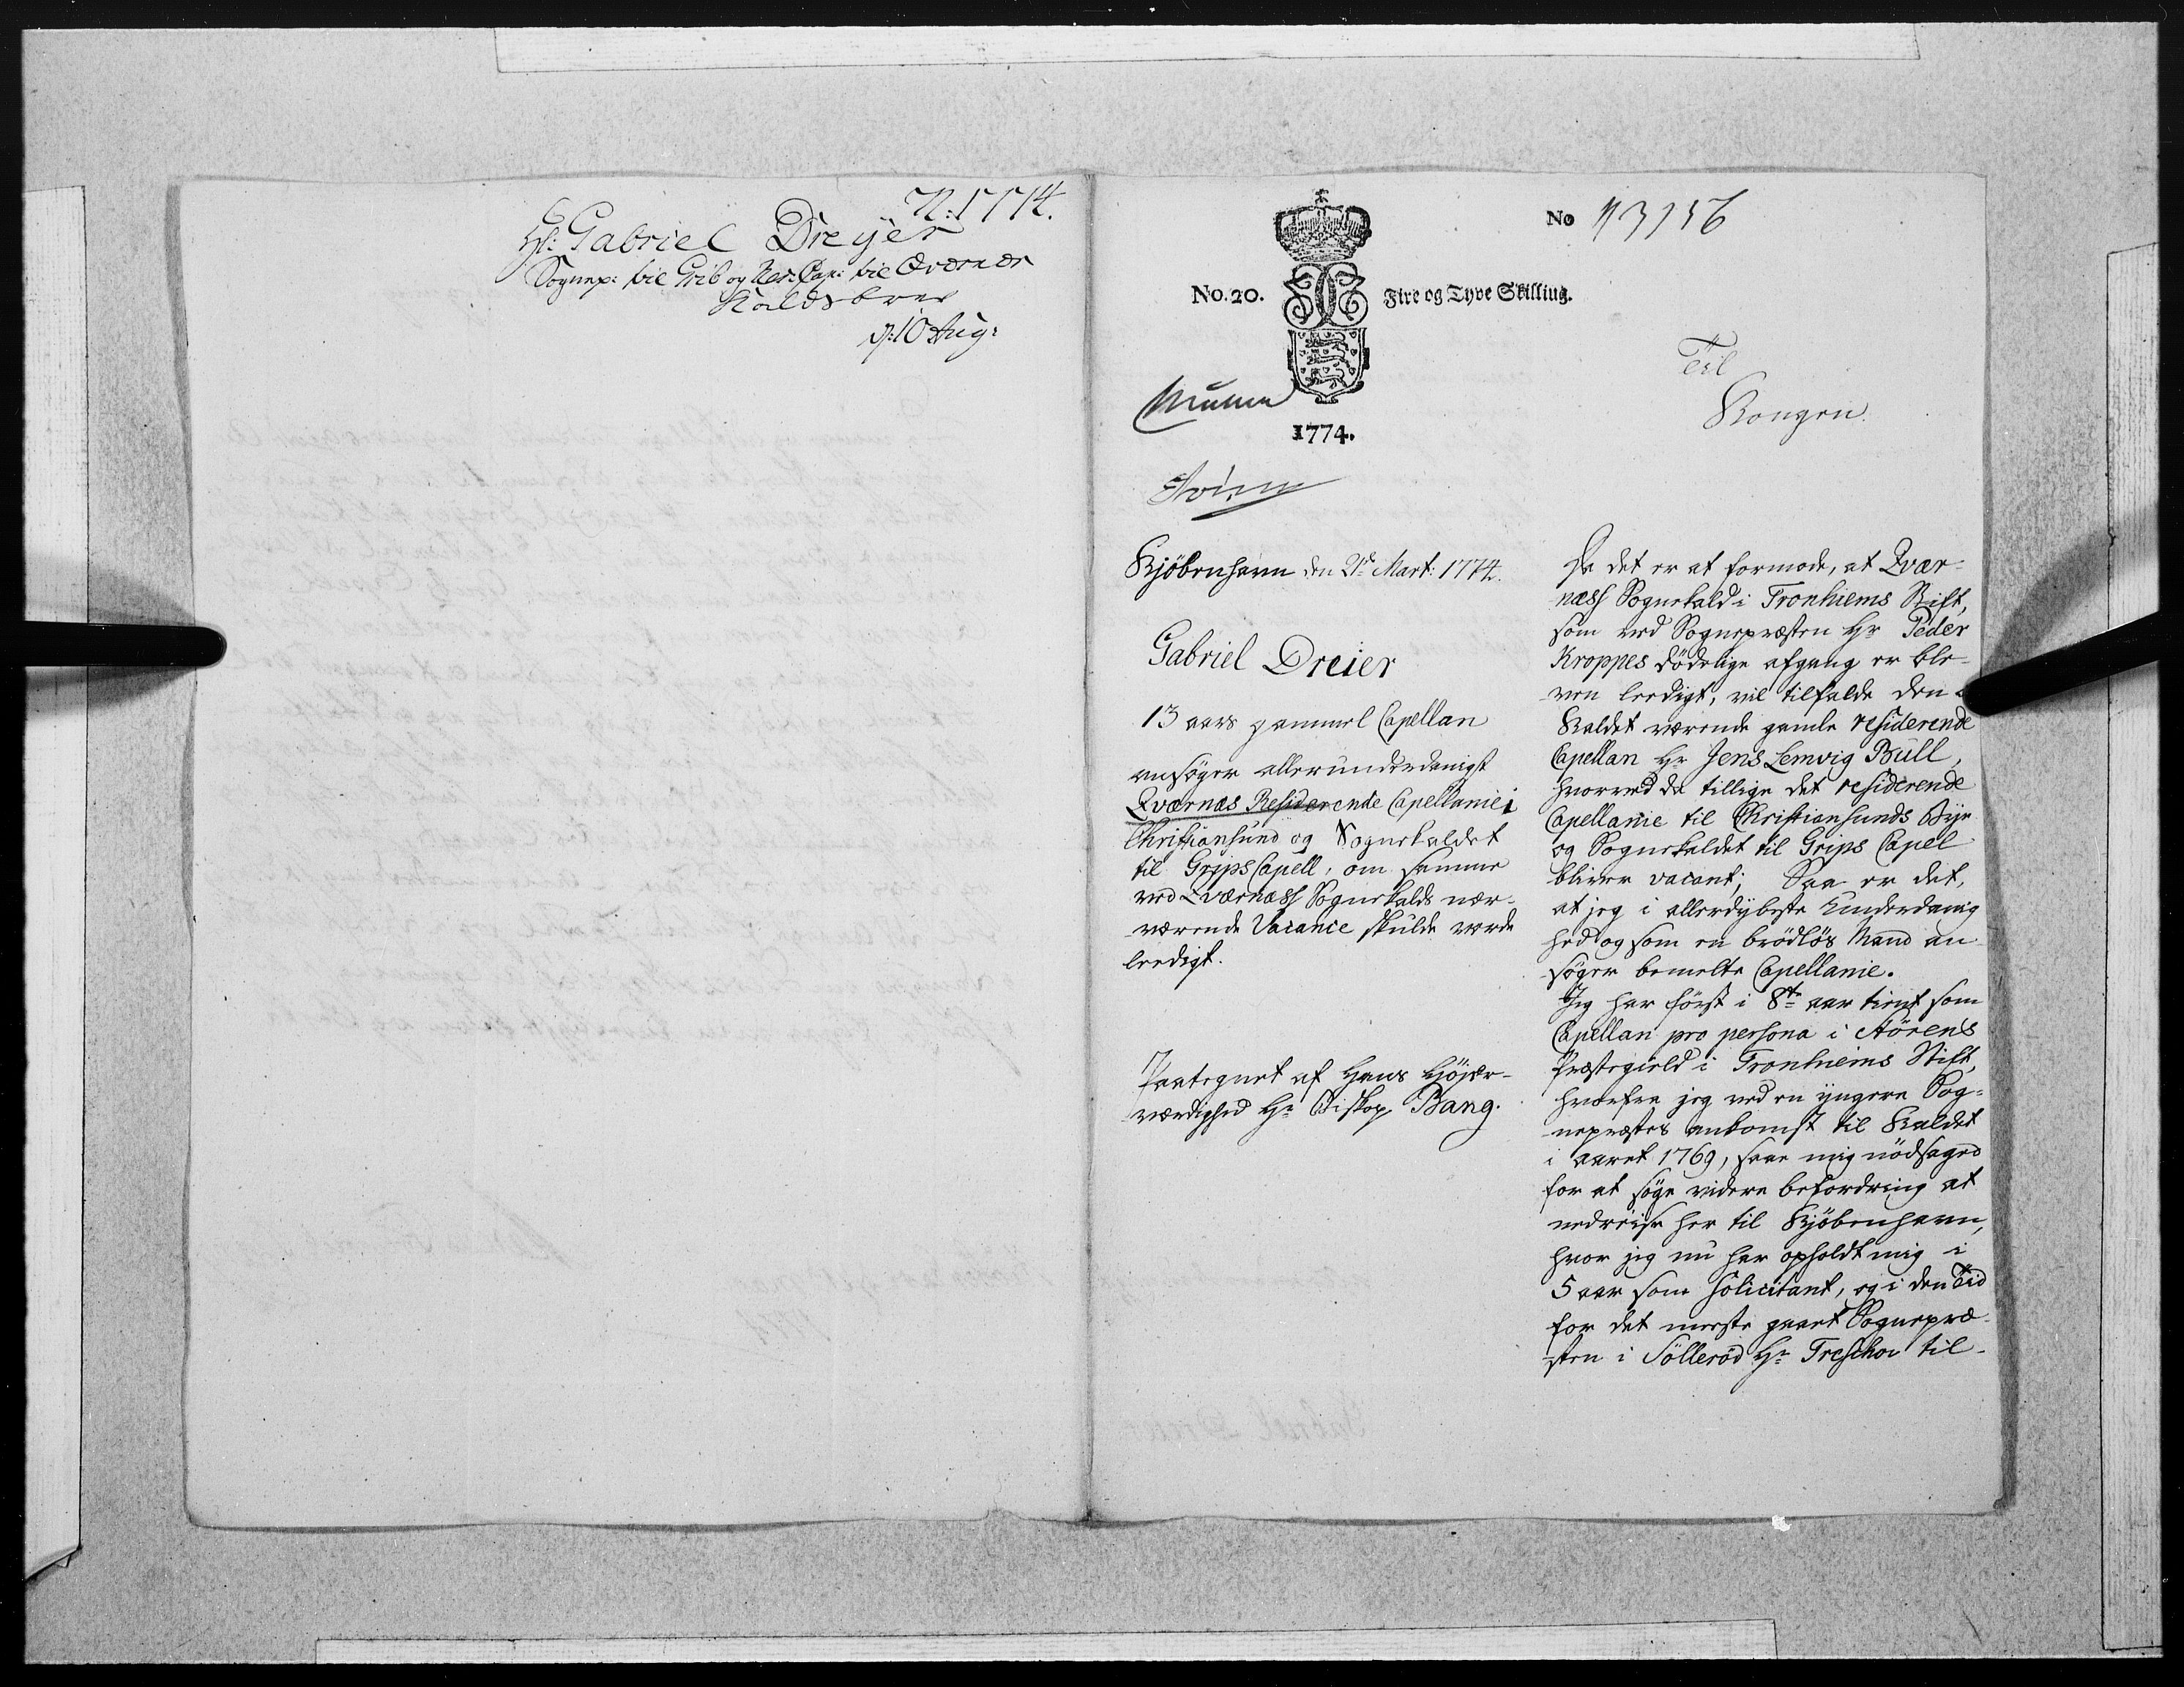 N: 1774.
Hr: Gabriel Dreyer
Sognep: til Grib og Res: Cap: til Qværnæs
Kaldsbrev
d: 10 Aug:
No 43156
No. 20. Fire og Tyve Skilling.
1774.
Til
Kongen.
Kjöbenhavn den 21de Mart: 1774.
Gabriel Dreier
13 aars gammel Capellan
ansöger allerunderdanigst
Qværnæs Residerende Capellanie i
Christiansund og Sognekaldet
til Grips Capell, om samme
ved Qværnæss Sognekalds nær-
værende Vacance skulde vorde
leedigt.
Paategnet af Hans Höjær-
værdighed Hr Biskop Bang.
Da det er at formode, at Qvær-
næss Sognekald i Tronhiems Stift,
som ved Sognepræsten Hr Peder
Kroppes dödelige afgang er ble-
ven leedigt, vil tilfalde den
Kaldet værende gamle residerende
Capellan Hr Jens Lemvig Bull,
hvorved da tillige det residerende
Capellanie til Christiansunds Bye
og Sognekaldet til Grips Capel
bliver vacant; Saa er det,
at jeg i allerdybeste Underdanig
hed og som en brödlös Mand an
söger bemelte Capellanie.
Jeg har först i 8te aar tient som
Capellan pro persona i Störens
Præstegield i Tronhiems Stift,
hvorfra jeg ved en yngere Sog-
nepræstes ankomst til Kaldet
i aaret 1769, saae mig nödsaged
for at söge videre befordring at
nedreise her til Kjöbenhavn,
hvor jeg nu har opholdt mig i
5 aar som Solicitant, og i den Tid
for det meeste gaaet Sognepræ-
sten i Sölleröd Hr Treschov til-